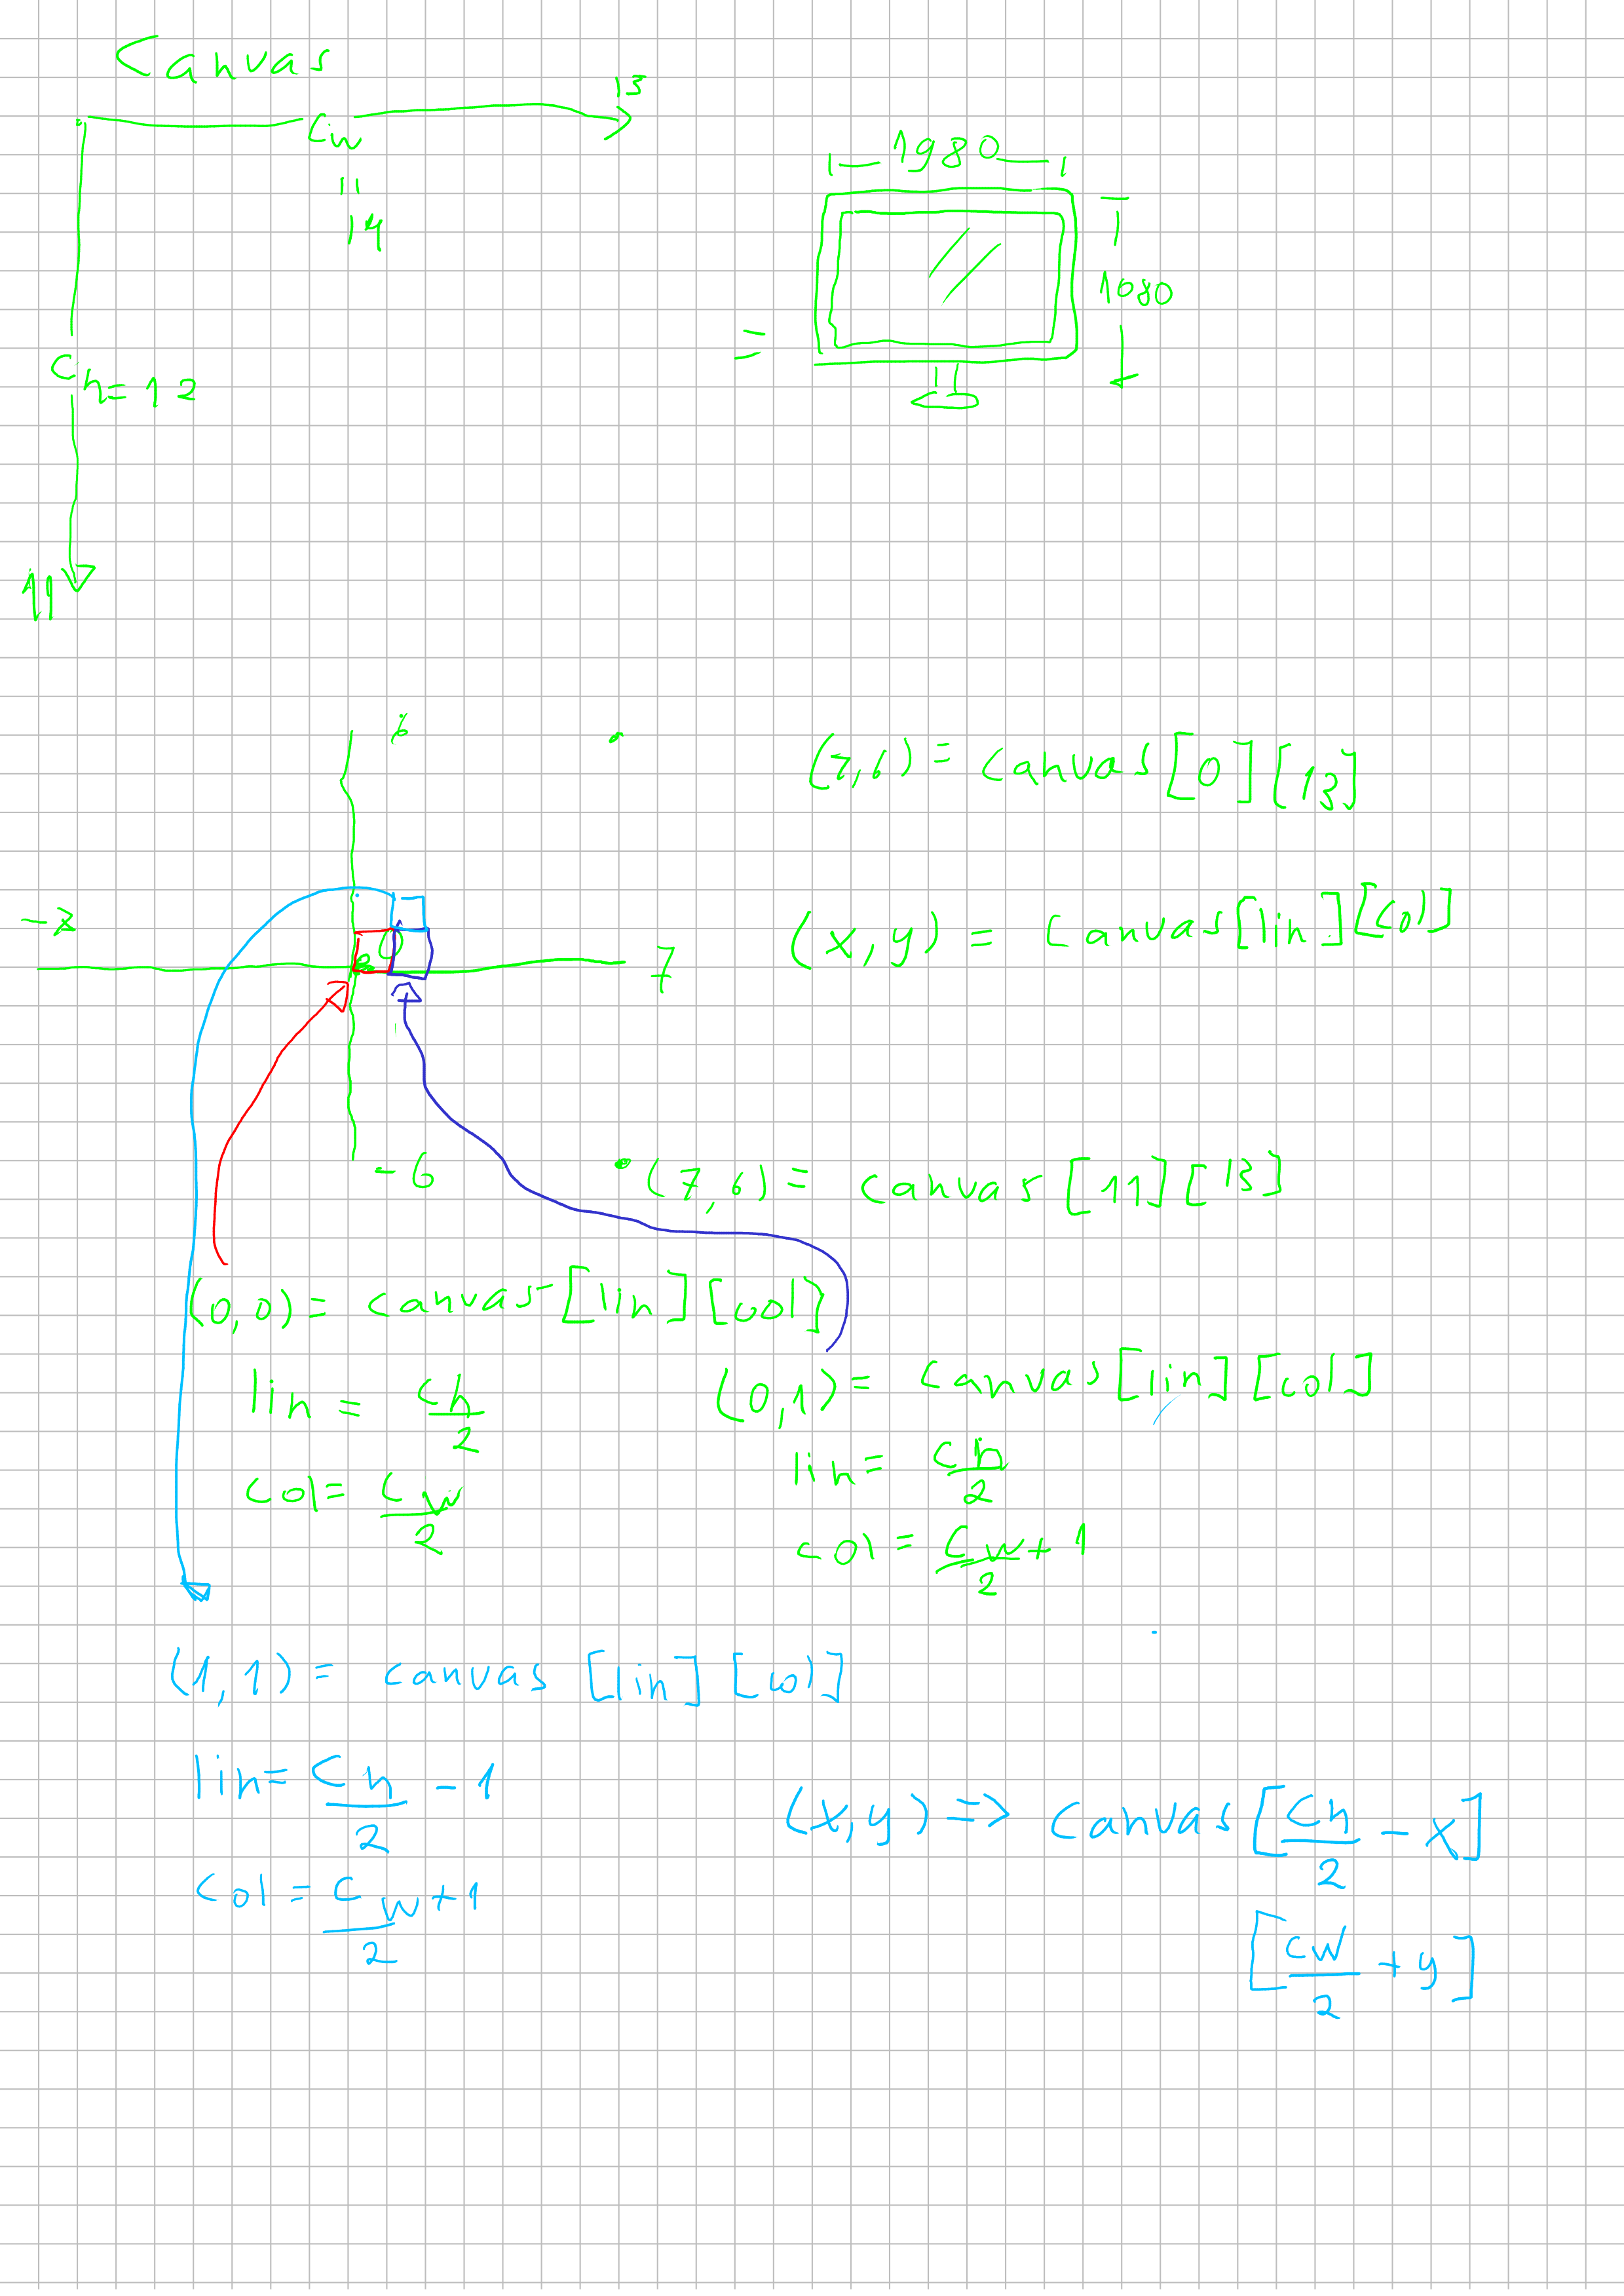 Canvas
13
Cw
=
14
1980
1080
=
Ch=12
11
6
(7,6) = canvas[0][13]
-7
(x,y) = canvas[lin][col]
7
-6
(7,6) = canvas[11][13]
(0,0) = canvas[lin][col]
lin = Ch/2
col = Cw/2
(0,1) = canvas[lin][col]
lin = Ch/2
col = Cw/2 + 1
(1,1) = canvas[lin][col]
lin = Ch/2 - 1
col = Cw/2 + 1
(x,y) => canvas[Ch/2 - x]
[Cw/2 + y]